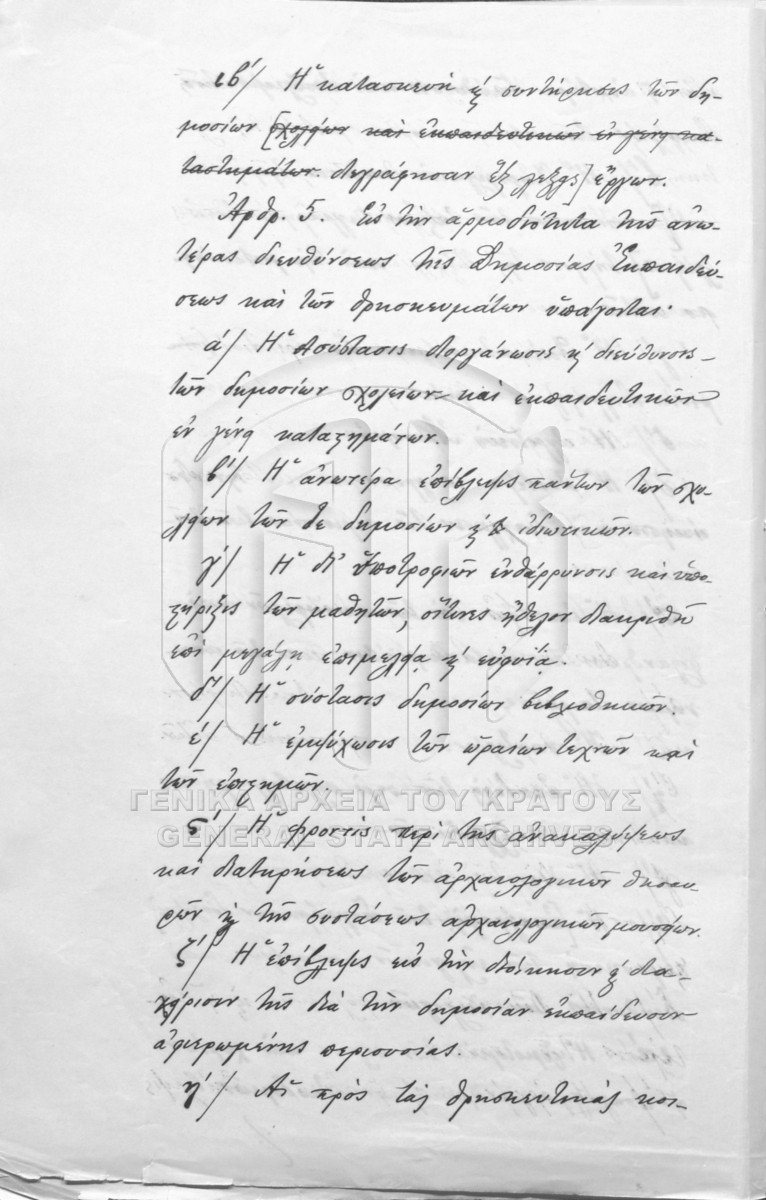 ιβ΄/ Ἡ κατασκευὴ κ̀ συντήρησις τῶν δη-
μοσίων [σχολείων καὶ ἐκπαιδευτικῶν ἐν γένει κα-
ταστημάτων. διεγράφησαν ἓξ λέξεις] ἔργων.
Ἄρθρ. 5. Εἰς τὴν ἁρμοδιότητα τῆς ἀνω-
τέρας διευθύνσεως τῆς Δημοσίας Ἐκπαιδεύ-
σεως καὶ τῶν θρησκευμάτων ὑπάγονται·
ά/ Ἡ σύστασις διοργάνωσις κ̀ διεύθυνσις
τῶν δημοσίων σχολείων καὶ ἐκπαιδευτικῶν
ἐν γένει καταστημάτων.
β΄/ Ἡ ἀνωτέρα ἐπίβλεψις πάντων τῶν σχο-
λείων τῶν τε δημοσίων κ̀ ἰδιωτικῶν.
γ΄/ Ἡ δι' ὑποτροφιῶν ἐνθάρρυνσις καὶ ὑπο-
στήριξις τῶν μαθητῶν, οἵτινες ἤθελον διακριθῆ
ἐπὶ μεγάλῃ ἐπιμελείᾳ κ̀ εὐφυΐᾳ.
δ΄/ Ἡ σύστασις δημοσίων βιβλιοθηκῶν.
έ/ Ἡ ἐμψύχωσις τῶν ὡραίων τεχνῶν καὶ
τῶν ἐπιστημῶν.
ΓΕΝΙΚΑ ΑΡΧΕΙΑ ΤΟΥ ΚΡΑΤΟΥΣ
ς΄/ Ἡ φροντὶς περὶ τῆς ἀνακαλύψεως
GENERAL STATE ARCHIVES
καὶ διατηρήσεως τῶν ἀρχαιολογικῶν θησαυ-
ρῶν κ̀ τῆς συστάσεως ἀρχαιολογικῶν μουσείων.
ζ΄/ Ἡ ἐπίβλεψις εἰς τὴν διοίκησιν κ̀ δια-
χείρισιν τῆς διὰ τὴν δημοσίαν ἐκπαίδευσιν
ἀφιερωμένης περιουσίας.
ή/ Αἱ πρὸς τὰς θρησκευτικὰς κοι-